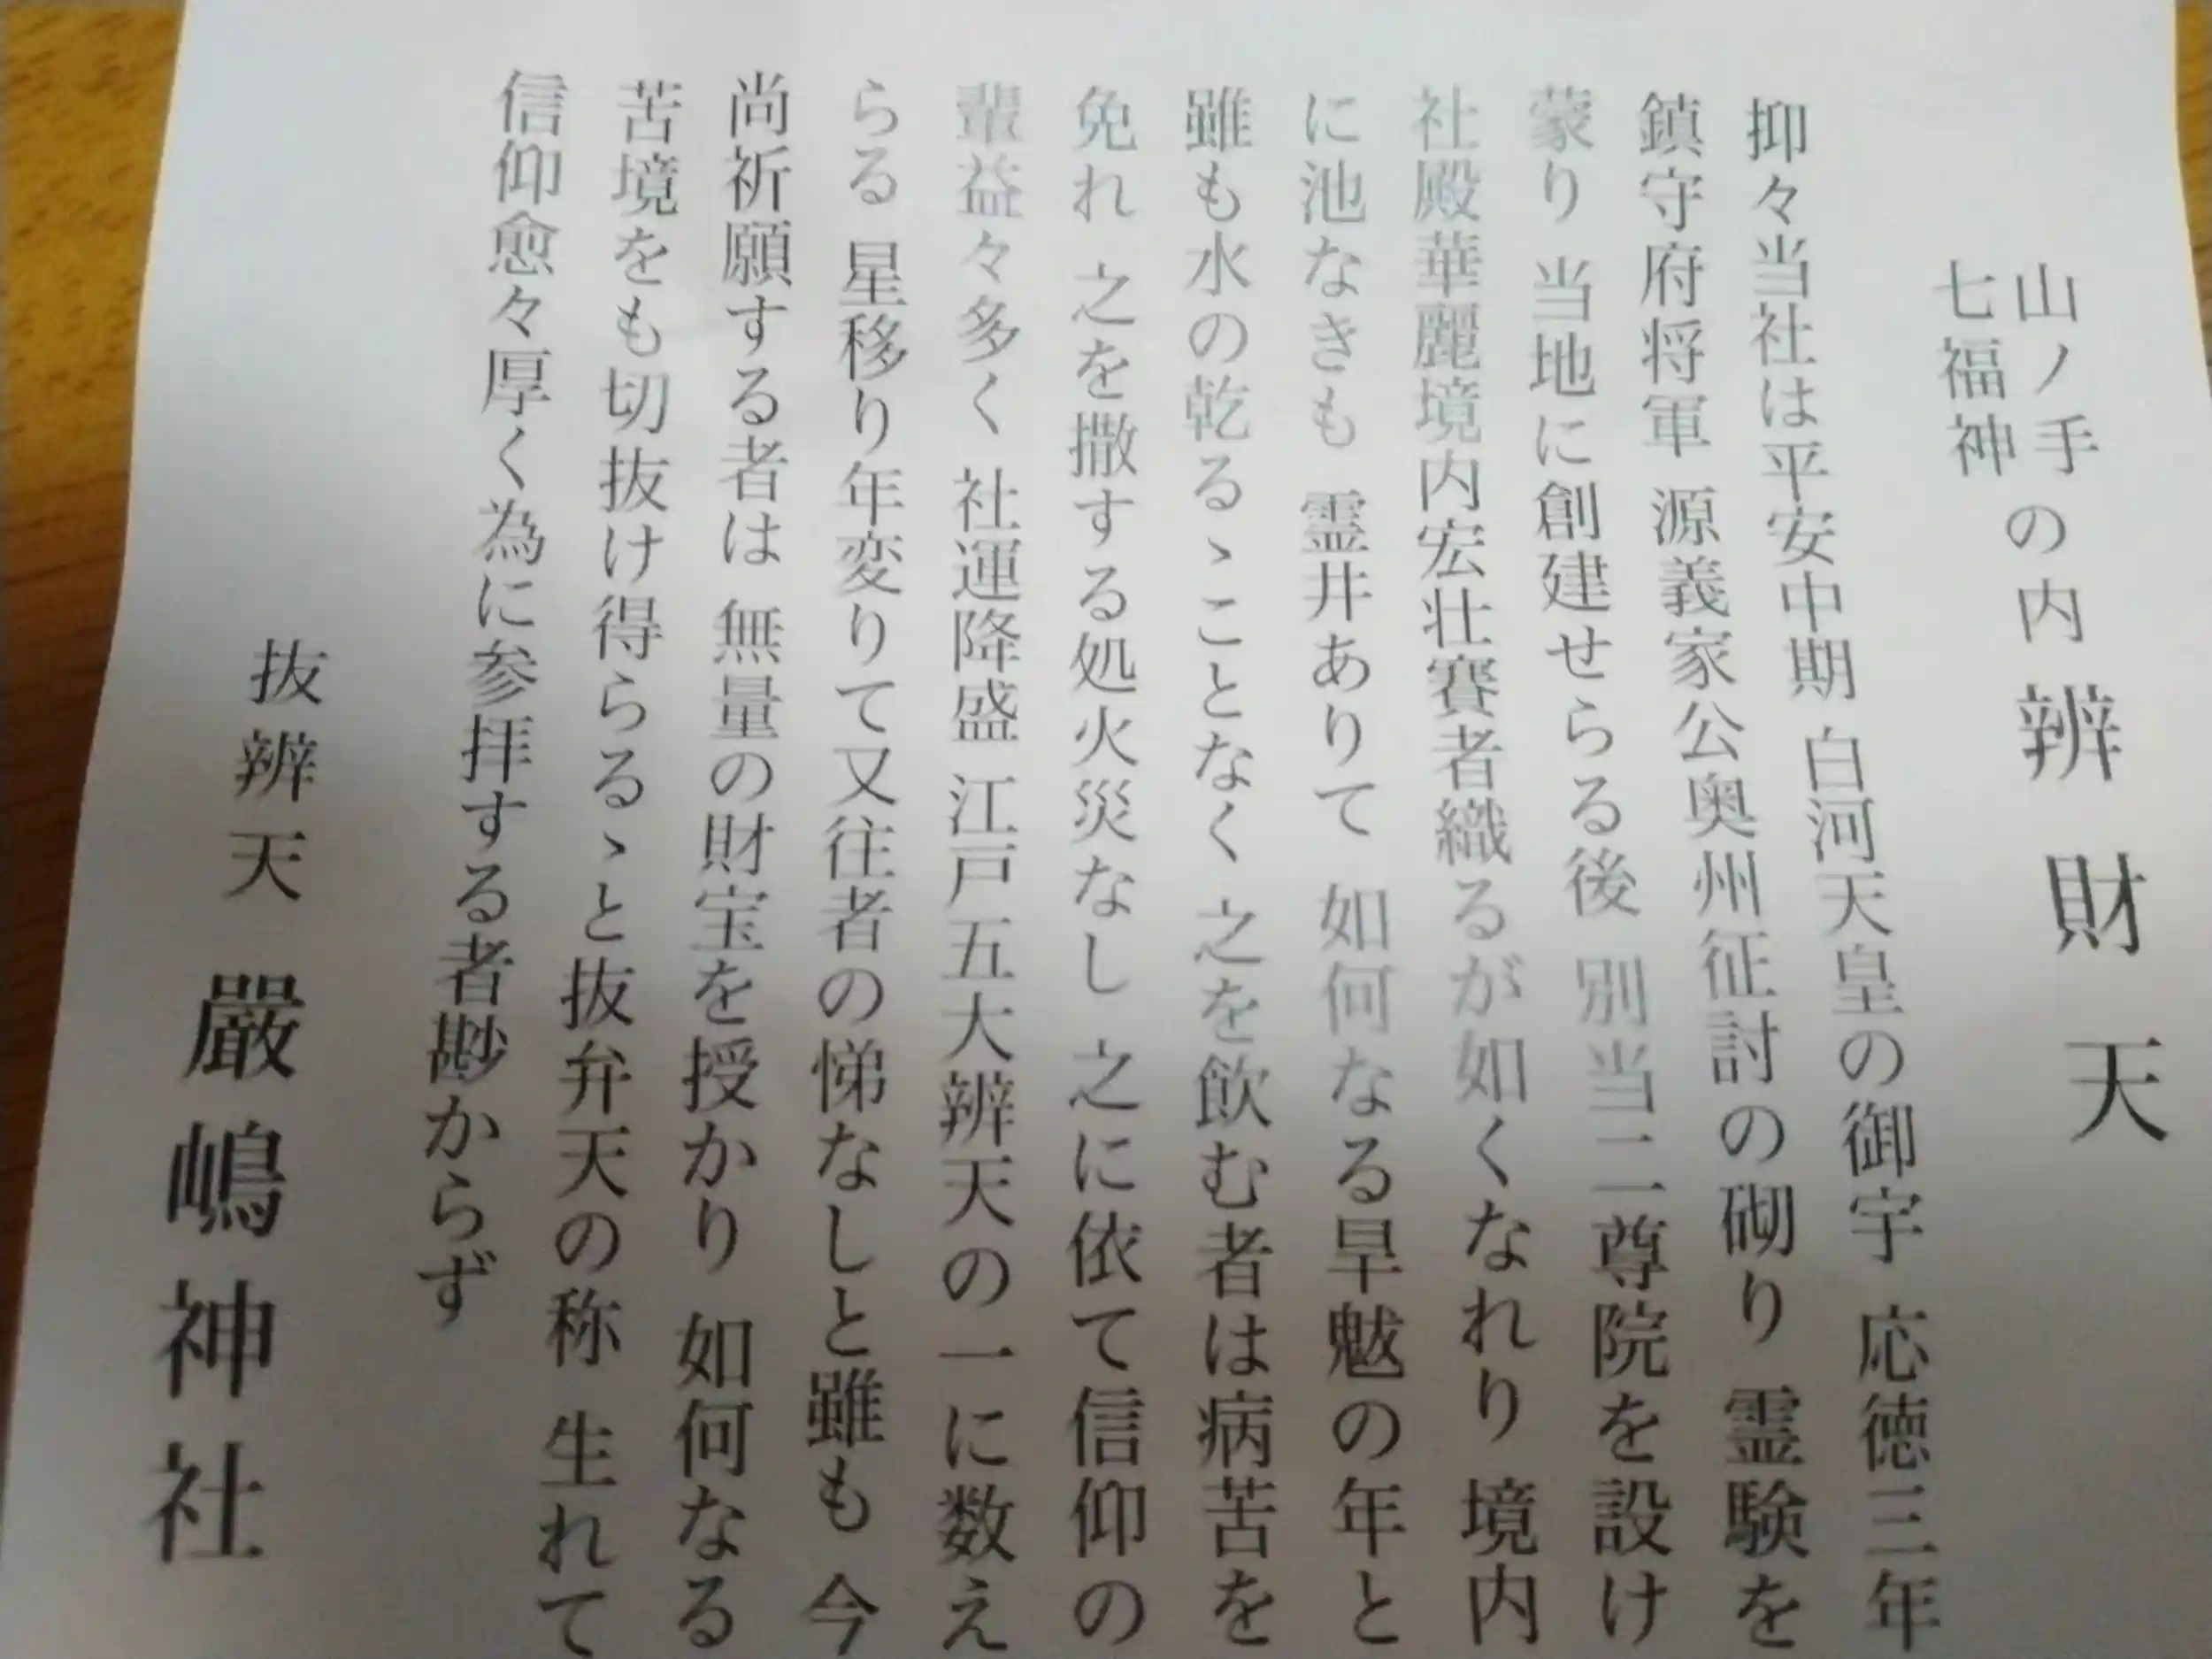 山ノ手
七福神
の内 辨財天
抑々当社は平安中期 白河天皇の御宇 応徳三年
鎮守府将軍 源義家公奥州征討の砌り 霊験を
蒙り 当地に創建せらる後 別当二尊院を設け
社殿華麗境内宏壮賽者織るが如くなれり 境内
に池なきも 霊井ありて 如何なる旱魃の年と
雖も水の乾るゝことなく 之を飲む者は病苦を
免れ 之を撒する処火災なし 之に依て信仰の
輩益々多く 社運降盛 江戸五大辨天の一に数え
らる 星移り年変りて又往者の悌なしと雖も 今
尚祈願する者は 無量の財宝を授かり 如何なる
苦境をも切抜け得らるゝと抜弁天の称 生れて
信仰愈々厚く為に参拝する者尠からず
抜辨天 嚴嶋神社